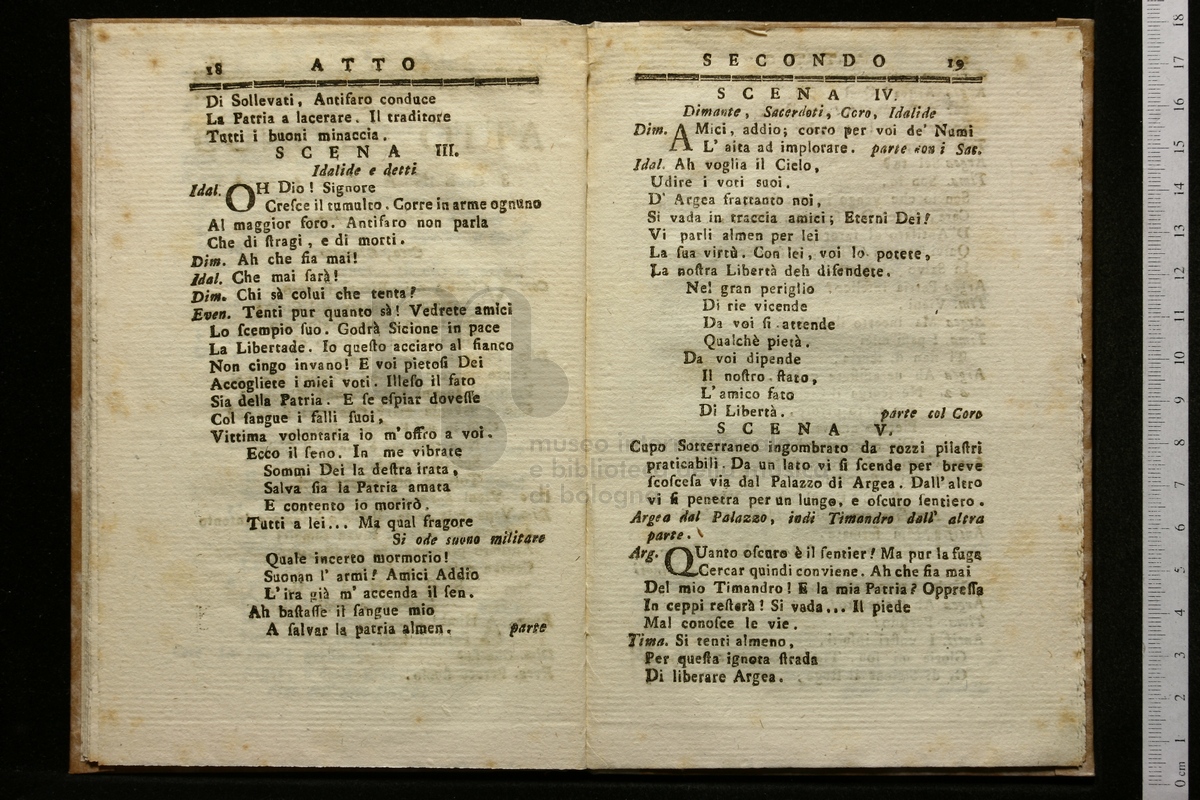 18 ATTO
Di Sollevati, Antifaro conduce
La Patria a lacerare. Il traditore
Tutti i buoni minaccia.
SCENA III.
Idalide e detti
Idal. OH Dio! Signore
Creſce il tumulto. Corre in arme ognuno
Al maggior foro. Antifaro non parla
Che di ſtragi, e di morti.
Dim. Ah che ſia mai!
Idal. Che mai ſarà!
Dim. Chi sà colui che tenta?
Even. Tenti pur quanto sà! Vedrete amici
Lo ſcempio ſuo. Godrà Sicione in pace
La Libertade. Io queſto acciaro al fianco
Non cingo invano! E voi pietoſi Dei
Accogliete i miei voti. Illeſo il fato
Sia della Patria. E ſe eſpiar doveſſe
Col ſangue i falli ſuoi,
Vittima volontaria io m'offro a voi.
Ecco il ſeno. In me vibrate
Sommi Dei la deſtra irata,
Salva ſia la Patria amata
E contento io morirò.
Tutti a lei... Ma qual fragore
Si ode suono militare
Quale incerto mormorio!
Suonan l' armi! Amici Addio
L'ira già m' accenda il ſen.
Ah baſtaſſe il ſangue mio
A ſalvar la patria almen. parte
SECONDO 19
SCENA IV.
Dimante, Sacerdoti, Coro, Idalide
Dim. AMici, addio; corro per voi de' Numi
L' aita ad implorare. parte con i Sac.
Idal. Ah voglia il Cielo,
Udire i voti suoi.
D' Argea frattanto noi,
Si vada in traccia amici; Eterni Dei!
Vi parli almen per lei
La ſua virtù. Con lei, voi lo potete,
La noſtra Libertà deh difendete.
Nel gran periglio
Di rie vicende
Da voi ſi attende
Qualchè pietà.
Da voi dipende
Il noſtro ſtato,
L'amico fato
Di Libertà. parte col Coro
SCENA V.
Cupo Sotterraneo ingombrato da rozzi pilaſtri
praticabili. Da un lato vi ſi ſcende per breve
ſcoſceſa via dal Palazzo di Argea. Dall'altro
vi ſi penetra per un lungo, e oſcuro ſentiero.
Argea dal Palazzo, indi Timandro dall' altra
parte.
Arg. QUanto oſcuro è il ſentier! Ma pur la fuga
Cercar quindi conviene. Ah che ſia mai
Del mio Timandro! E la mia Patria? Oppreſſa
In ceppi reſterà! Si vada... Il piede
Mal conoſce le vie.
Tima. Si tenti almeno,
Per queſta ignota ſtrada
Di liberare Argea.